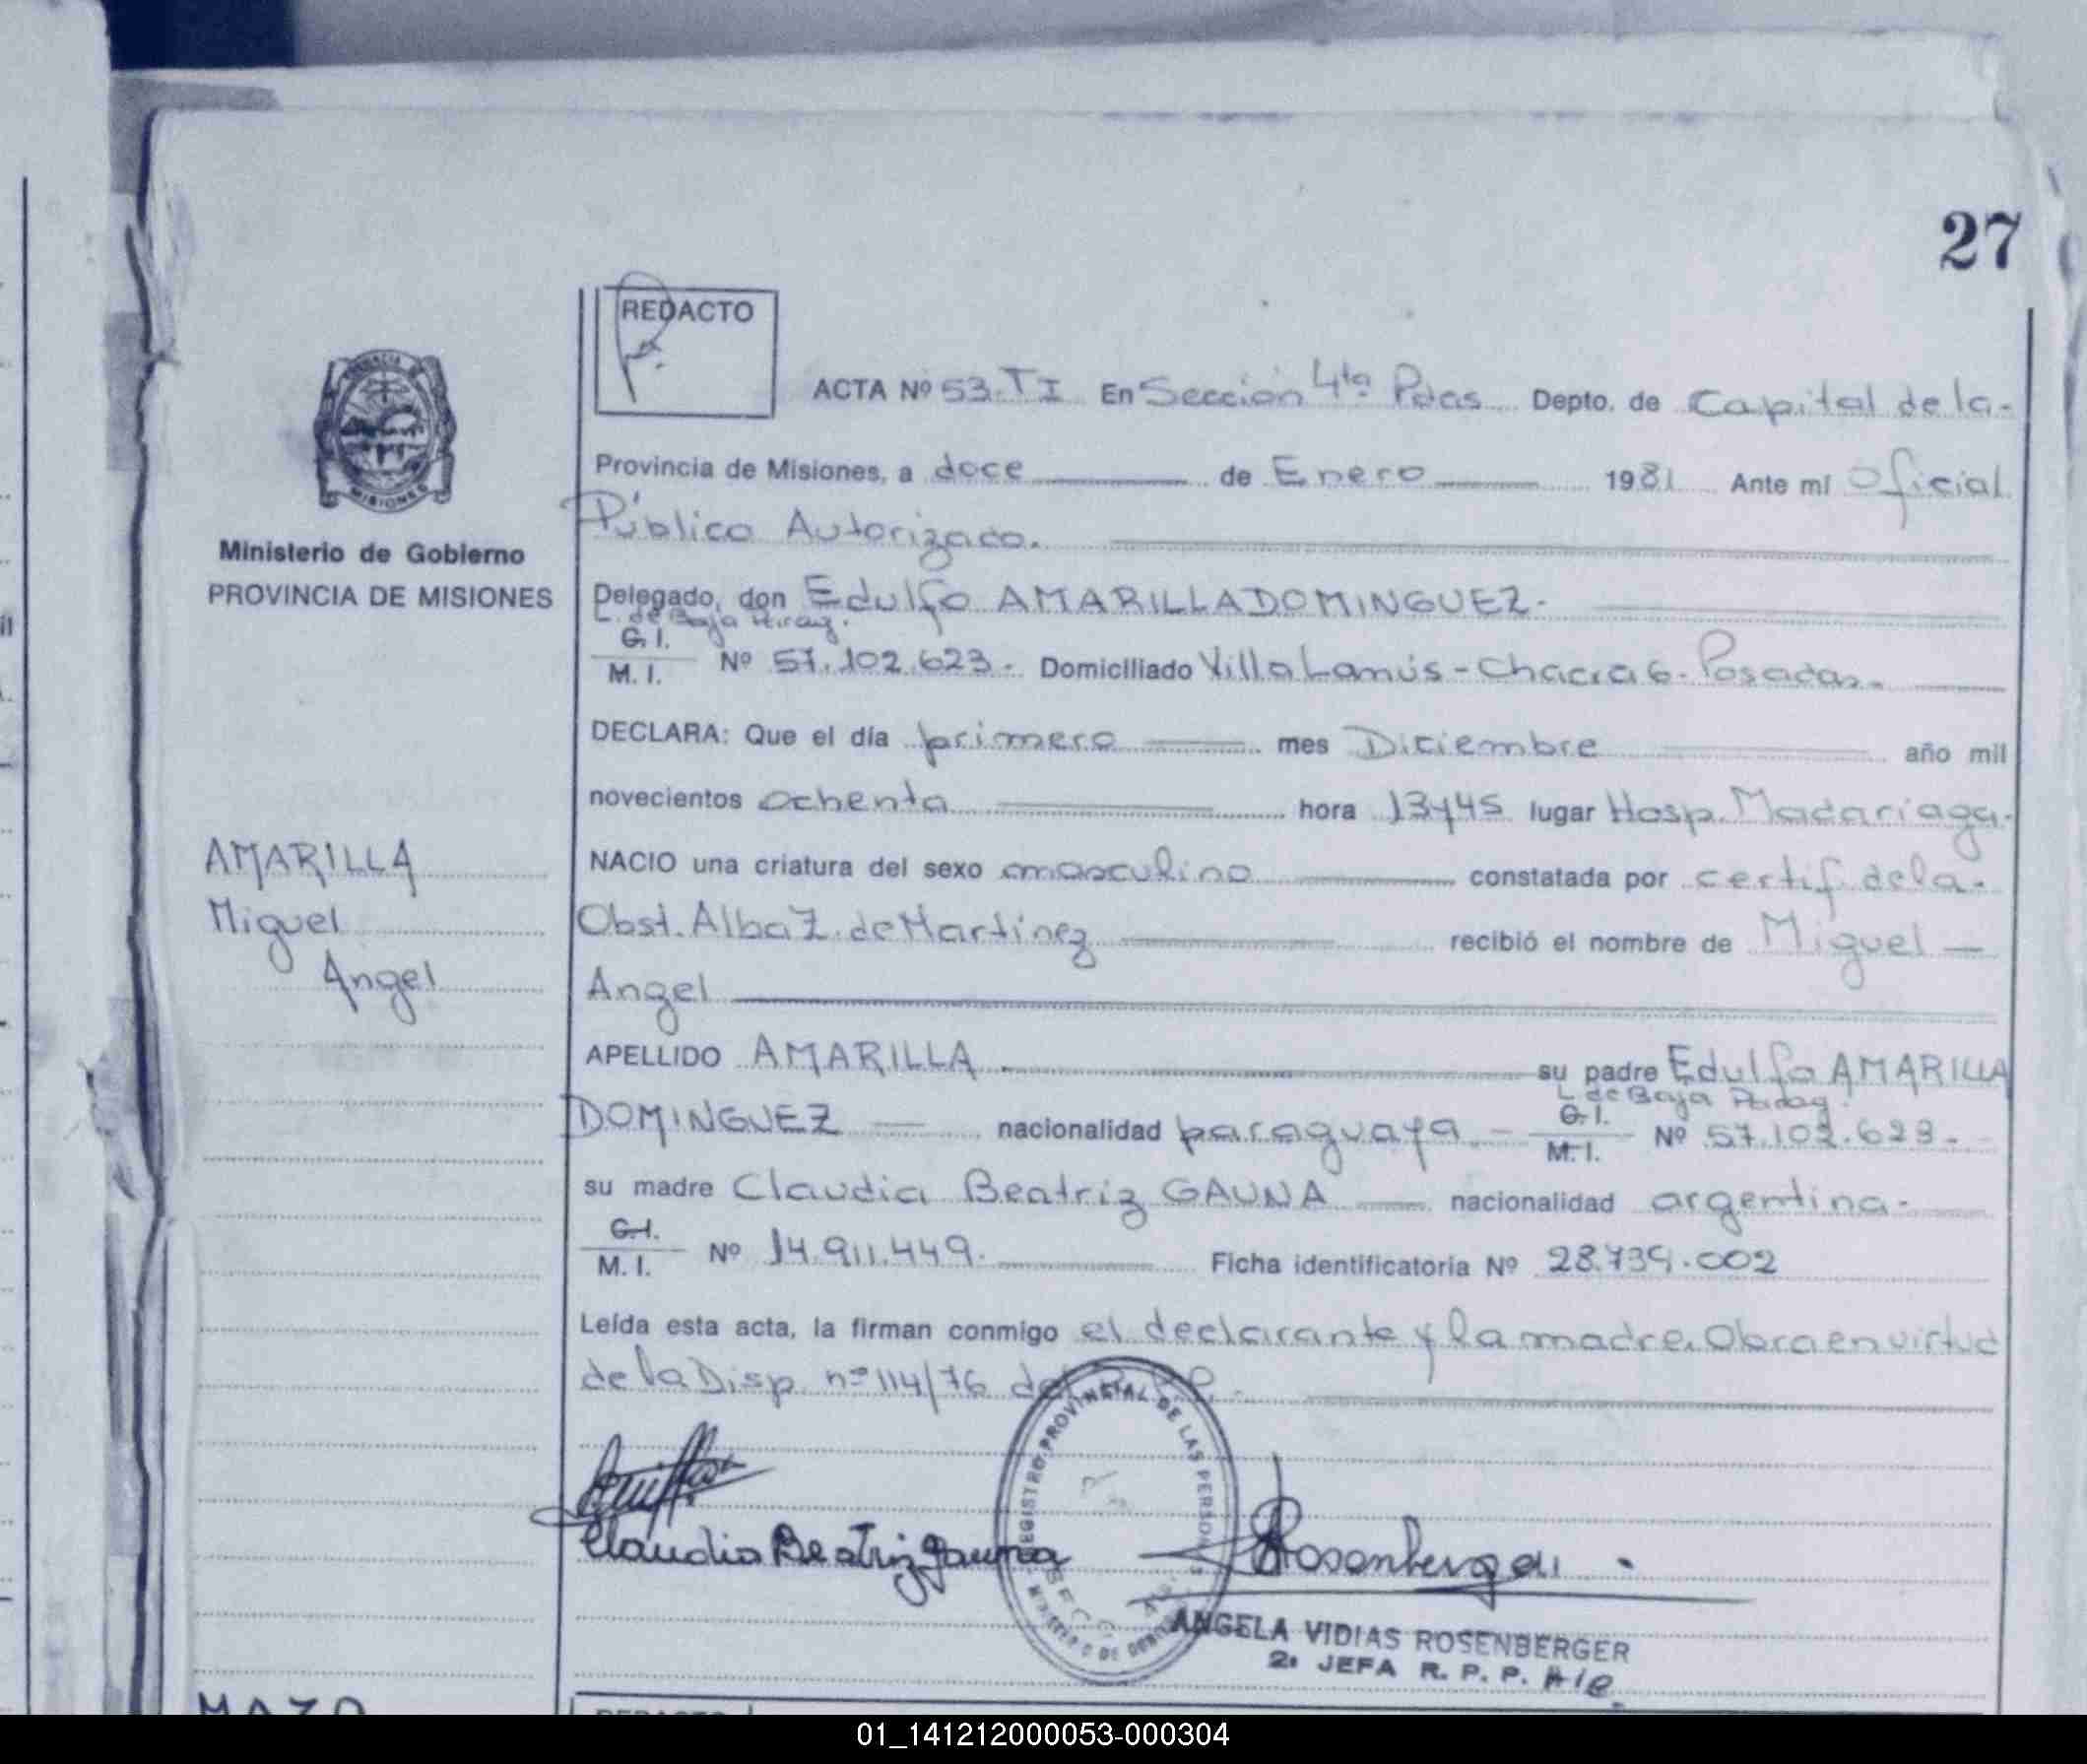 27
REDACTO
ACTA Nº 53. T I En Sección 4ta. Pdas. Depto. de Capital de la-
Provincia de Misiones, a doce de Enero 1981 Ante mí Oficial
Público Autorizado.
Ministerio de Gobierno
PROVINCIA DE MISIONES
MISIONES
Delegado, don Edulfo AMARILLA DOMINGUEZ.
L. de Baja Parag.
C. I.
M. I. Nº 57.102.623. Domiciliado Villa Lanús - Chacra 6. Posadas.
DECLARA: Que el día primero mes Diciembre año mil
novecientos ochenta hora 13y45 lugar Hosp. Madariaga.
AMARILLA
Miguel
Angel
NACIO una criatura del sexo masculino constatada por certif. de la.
Obst. Alba Z. de Martínez recibió el nombre de Miguel
Angel
APELLIDO AMARILLA su padre Edulfo AMARILLA
L de Baja Parag.
DOMINGUEZ nacionalidad paraguaya. C. I. M. I. Nº 57.102.623.
su madre Claudia Beatriz GAUNA nacionalidad argentina.
C. I.
M. I. Nº 14.911.449. Ficha identificatoria Nº 28.739.002
Leída esta acta, la firman conmigo el declarante y la madre. Obra en virtud
de la Disp. nº 114/76 del
REGISTRO PROVINCIAL DE LAS PERSONAS
Claudia Beatriz Gauna
Rosenberger
ANGELA VIDIAS ROSENBERGER
2ª JEFA R. P. P. A/C
01_141212000053-000304